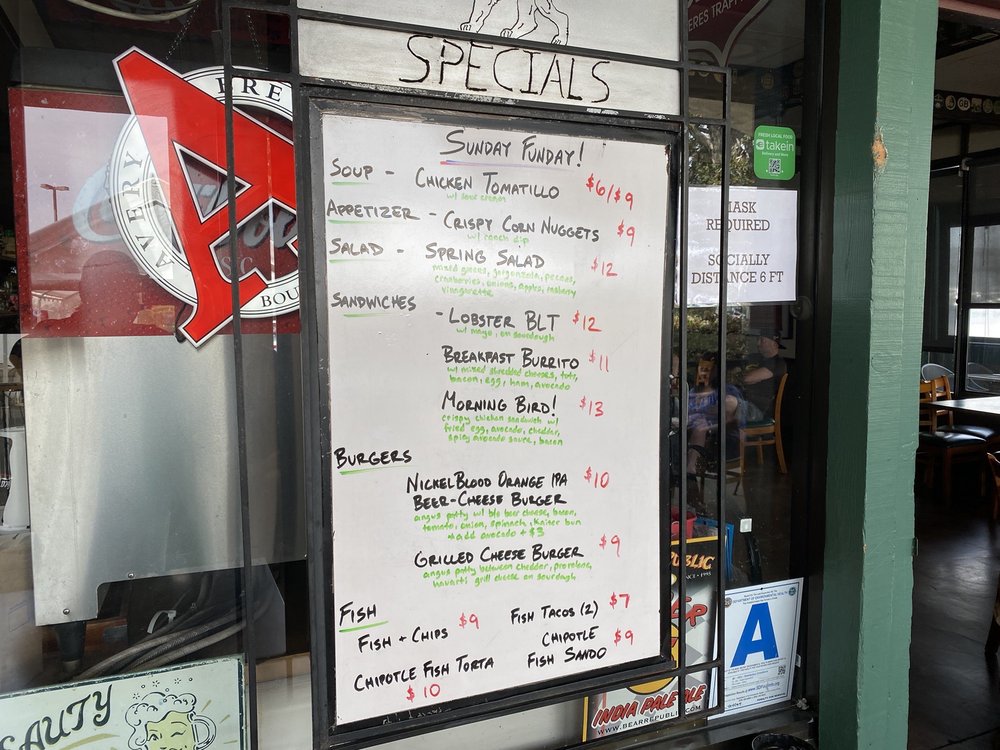 SPECIALS
SUNDAY FUNDAY!
SOUP - CHICKEN TOMATILLO $6/$9
w/ sour cream
APPETIZER - CRISPY CORN NUGGETS $9
w/ ranch dip
SALAD - SPRING SALAD $12
mixed greens, gorgonzola, pecans,
cranberries, onions, apples, rasberry
vinaigarette
SANDWICHES - LOBSTER BLT $12
w/ mayo, on sourdough
BREAKFAST BURRITO $11
w/ mixed shredded cheeses, tots,
bacon, egg, ham, avocado
MORNING BIRD! $13
crispy chicken sandwich w/
fried egg, avocado, cheddar,
spicy avocado sauce, bacon
BURGERS
NICKELBLOOD ORANGE IPA $10
BEER-CHEESE BURGER
angus patty w/ bbo beer cheese, bacon,
tomato, onion, spinach, kaiser bun
*add avocado + $3
GRILLED CHEESE BURGER $9
angus patty between cheddar, provolone,
havarti grill cheese on sourdough
FISH
FISH + CHIPS $9
FISH TACOS (2) $7
CHIPOTLE FISH TORTA
$10
CHIPOTLE $9
FISH SANDO
AVERY BRE
BOU
FRESH LOCAL FOOD
takein
Delivery and More
MASK
REQUIRED
SOCIALLY
DISTANCE 6 FT
ERES TRAPP
PUBLIC
SINCE - 1995
INDIA PALE ALE
WWW.BEARREPUBLIC.COM
DEPARTMENT OF ENVIRONMENTAL HEALTH
A
EAUTY